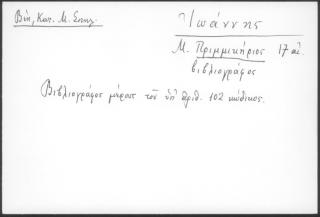 Βιβ. Κατ. Μ. Σινᾶ
Ἰωάννης
Μ. Πριμμικήριος 17 αἰ.
βιβλιογράφος
Βιβλιογράφος μέρους τοῦ ὑπ' ἀριθ. 102 κώδικος.